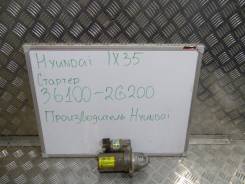 Hyundai IX35
Стартер
36100-2G200
Производитель Hyundai